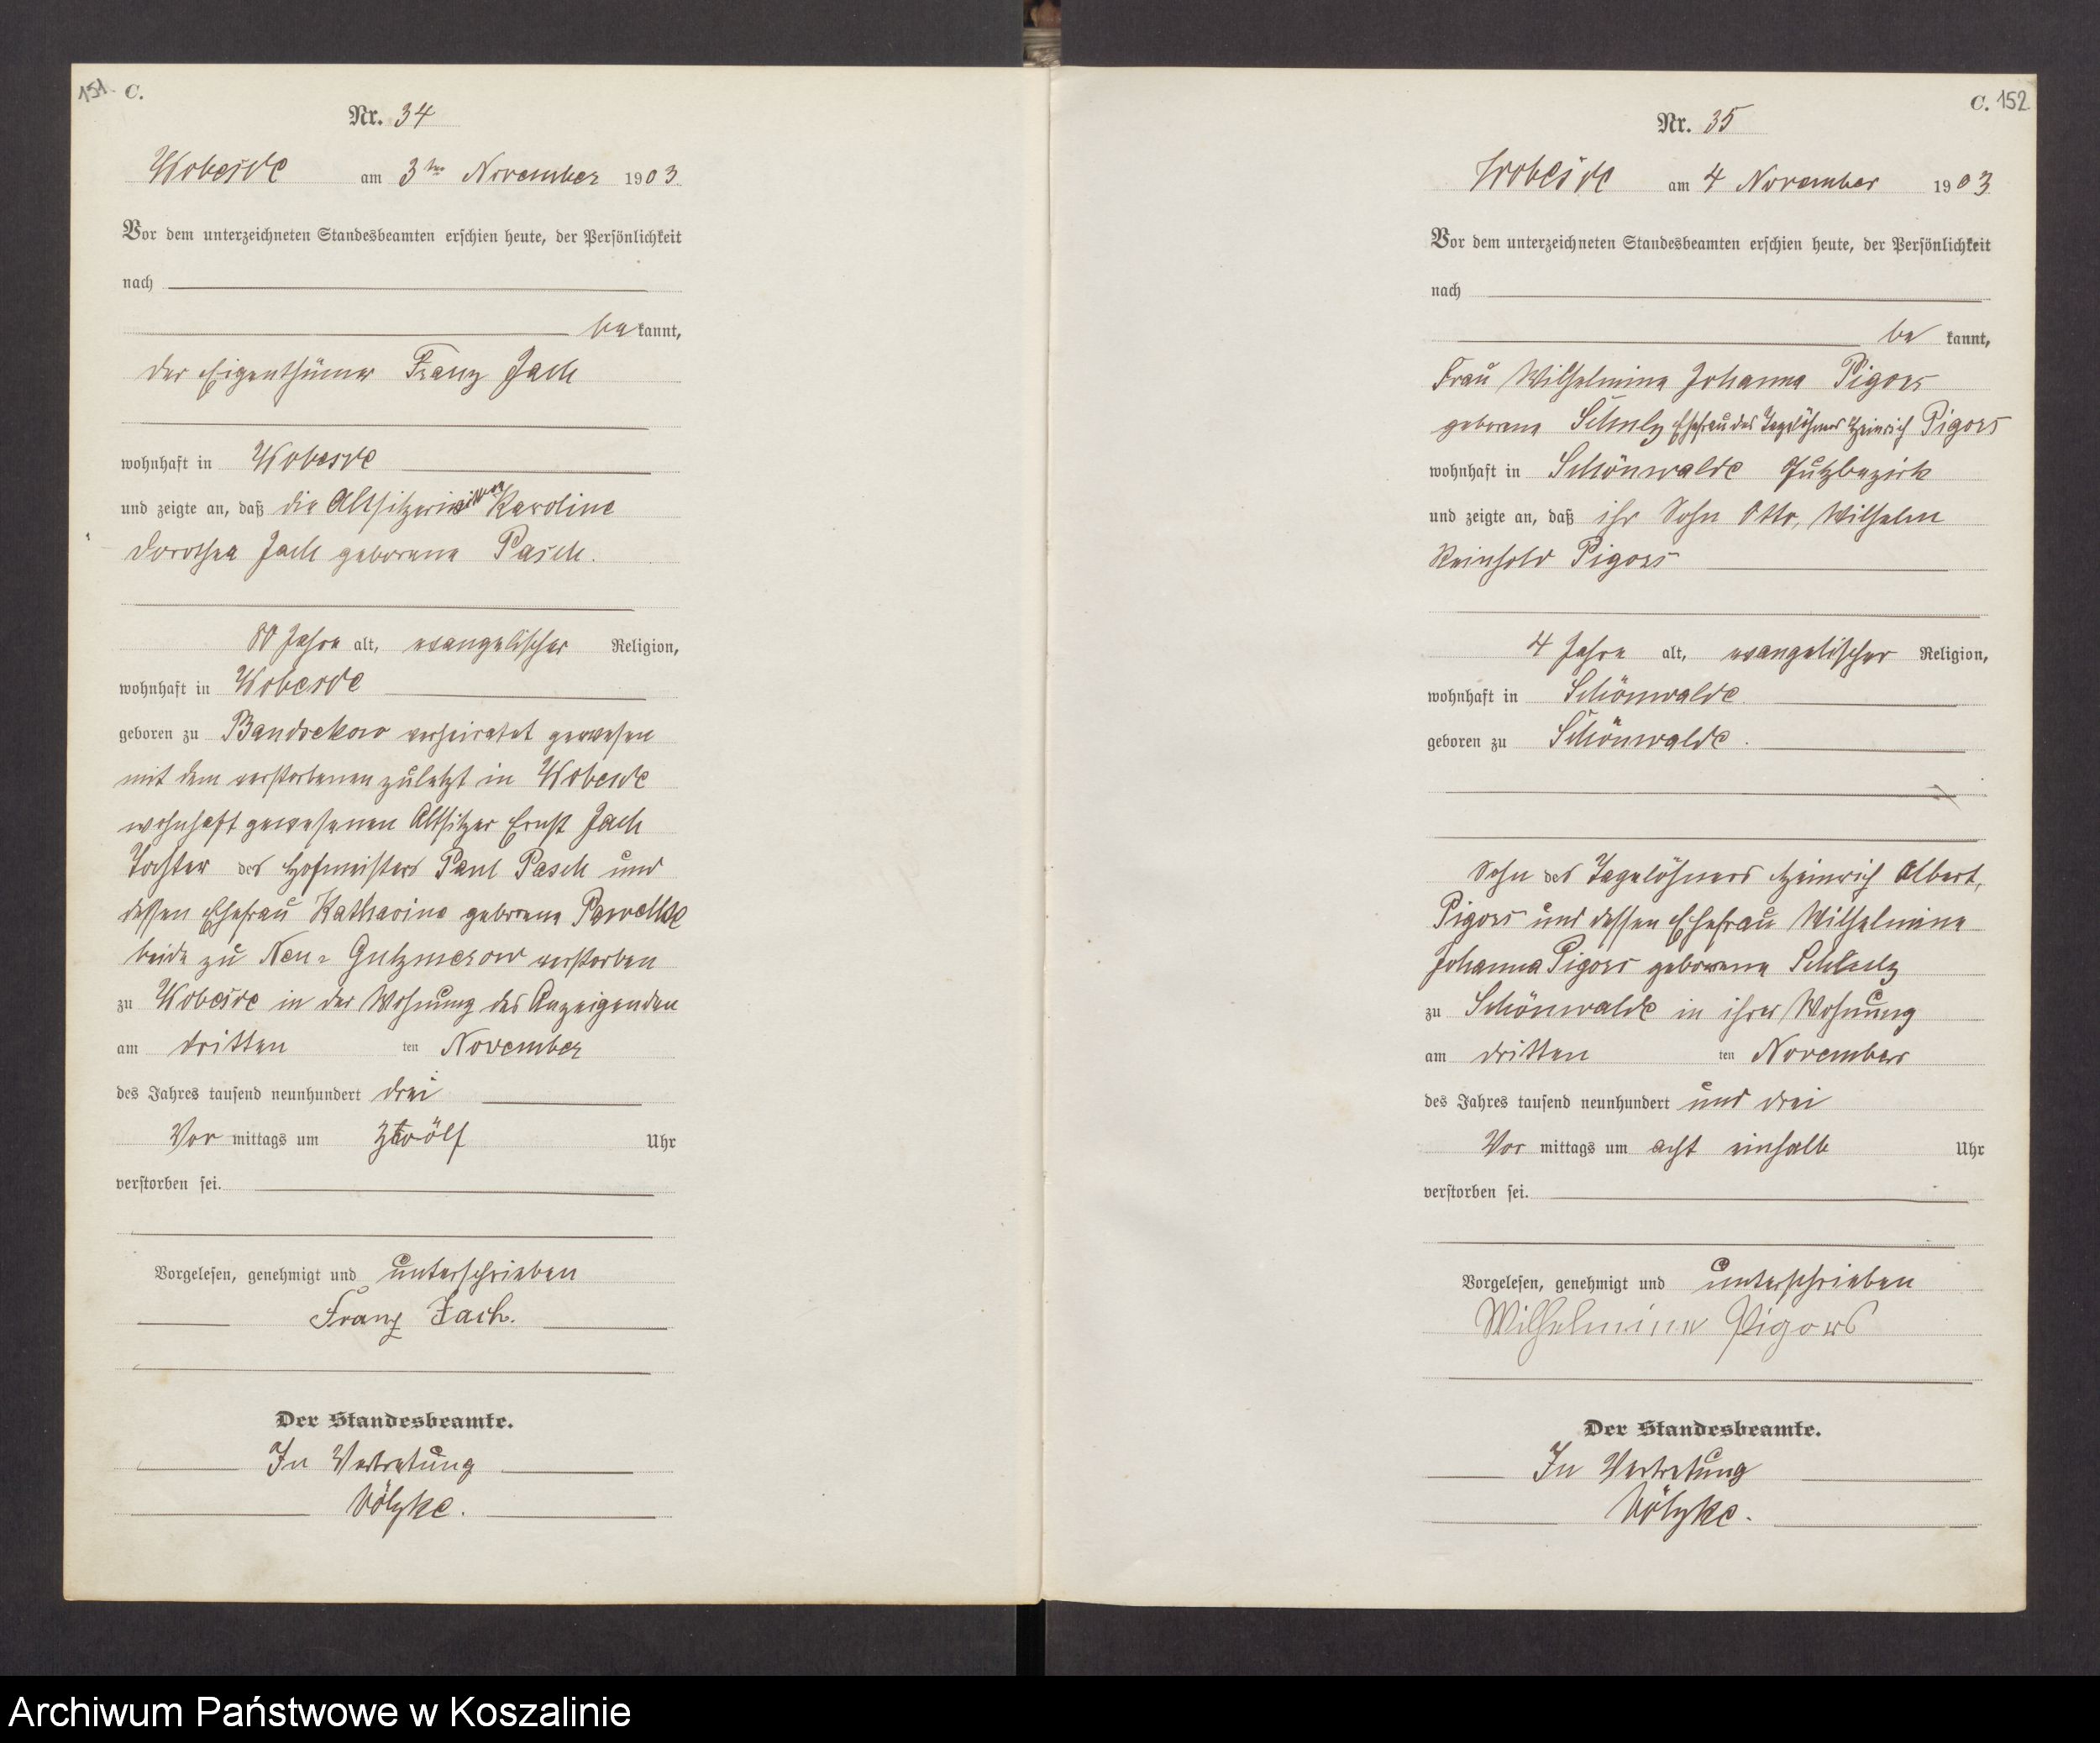 151. C.
Nr. 34
Wobesde am 3ten November 1903
Vor dem unterzeichneten Standesbeamten erschien heute, der Persönlichkeit
nach
bekannt,
der Eigenthümer Franz Jach
wohnhaft in Wobesde
und zeigte an, daß die Altsitzerin Karoline
Dorothea Jach geborene Pasch.
80 Jahre alt, evangelischer Religion,
wohnhaft in Wobesde
geboren zu Bandsekow verheiratet gewesen
mit dem verstorbenen zuletzt in Wobesde
wohnhaft gewesenen Altsitzer Ernst Jach
Tochter des Hofmeisters Paul Pasch und
dessen Ehefrau Katharine geborene Pawelke
beide zu Neu-Gutzmerow verstorben
zu Wobesde in der Wohnung des Anzeigenden
am dritten ten November
des Jahres tausend neunhundert drei
Vor mittags um zwölf Uhr
verstorben sei.
Vorgelesen, genehmigt und unterschrieben
Franz Jach.
Der Standesbeamte.
In Vertretung
Völzke.
C. 152
Nr. 35
Wobesde am 4 November 1903
Vor dem unterzeichneten Standesbeamten erschien heute, der Persönlichkeit
nach
be kannt,
Frau Wilhelmine Johanna Pigors
geborene Schulz Ehefrau des Tagelöhners Heinrich Pigors
wohnhaft in Schönwalde Gutzbezirk
und zeigte an, daß ihr Sohn Otto, Wilhelm
Reinhold Pigors
4 Jahre alt, evangelischer Religion,
wohnhaft in Schönwalde
geboren zu Schönwalde.
Sohn des Tagelöhners Heinrich Albert,
Pigors und dessen Ehefrau Wilhelmine
Johanna Pigors geborene Schulz
zu Schönwalde in ihrer Wohnung
am dritten ten November
des Jahres tausend neunhundert und drei
Vor mittags um acht einhalb Uhr
verstorben sei.
Vorgelesen, genehmigt und unterschrieben
Wilhelmine Pigors
Der Standesbeamte.
In Vertretung
Völzke.
Archiwum Państwowe w Koszalinie